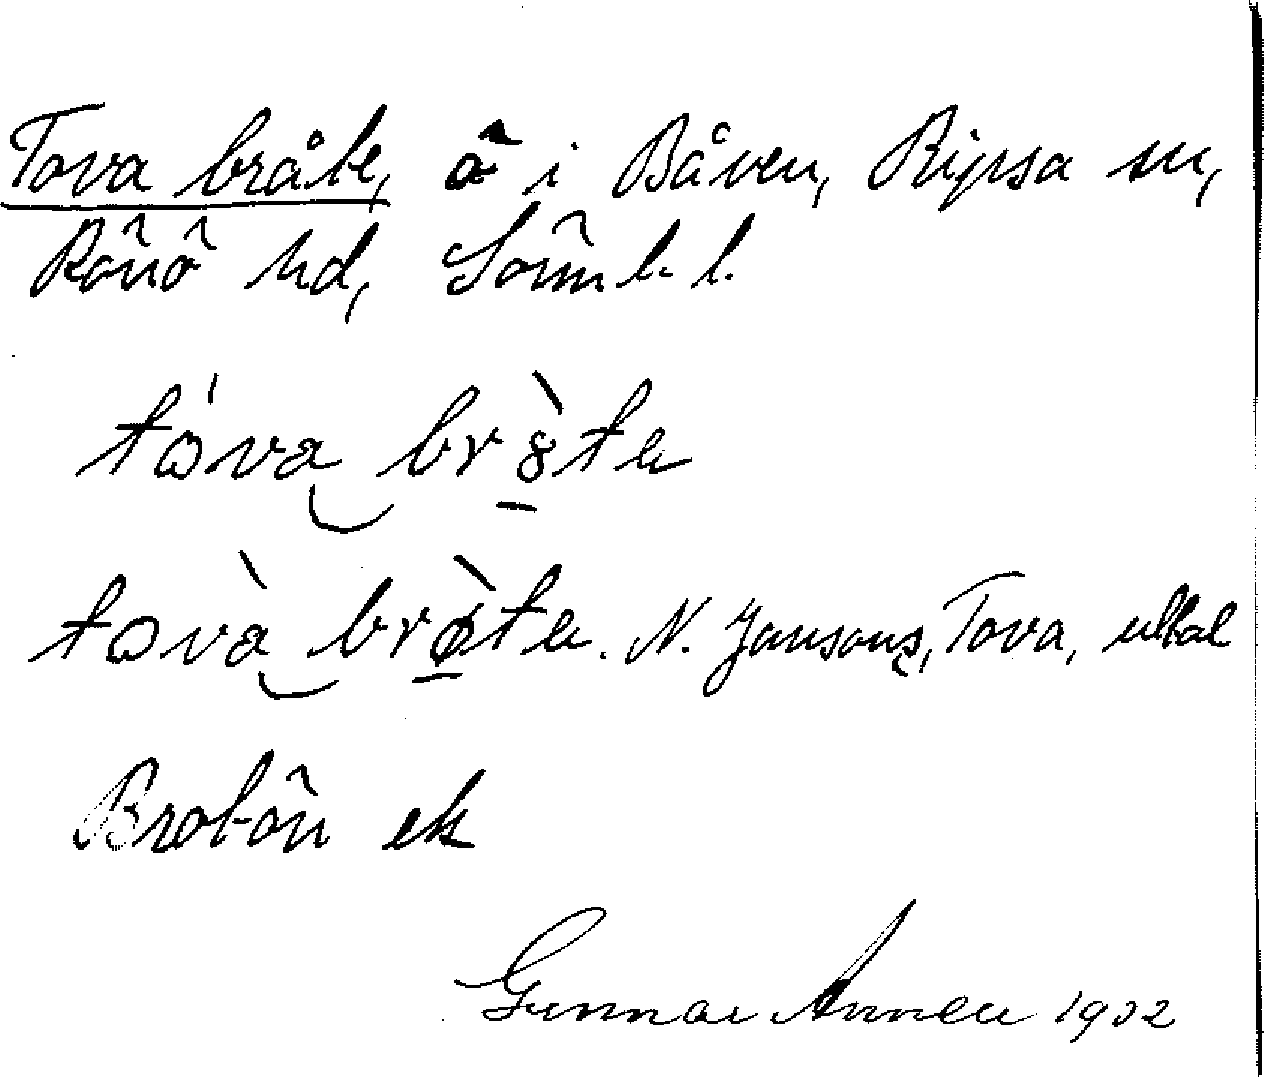 Tova bråte, ö i Båven, Ripsa sn,
Rönö hd, Sörml. l.
tova bröte
tovà brøte. N. Jansons, Tova, uttal
Brotön ek
Gunnar Annell 1932